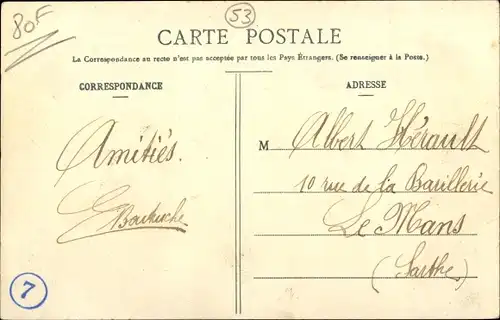 80F
53
CARTE POSTALE
La Correspondance au recto n'est pas acceptée par tous les Pays Étrangers. (Se renseigner à la Poste.)
CORRESPONDANCE
Amitiés.
7
ADRESSE
M Albert Hérault
10 rue de la Barillerie
Le Mans
(Sarthe)